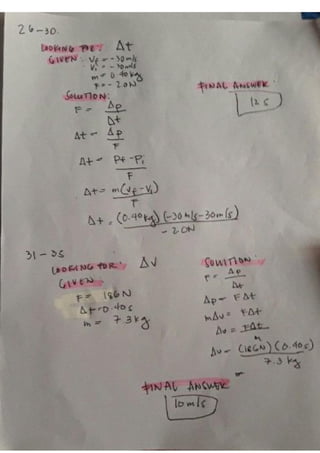 26-30.
LOOKING FOR: Δt
GIVEN: Vf = -30m/s
Vi = -30m/s
m = 0.40kg
F = -20N
SOLUTION:
F = Δp
Δt
Δt = Δp
F
Δt = Pf - Pi
F
Δt = m(vf - vi)
F
Δt = (0.40kg)(-30m/s-30m/s)
-20N
FINAL ANSWER
12 s
31-35
LOOKING FOR: Δv
GIVEN
F = 186N
Δt = 0.40s
m = 7.3kg
SOLUTION:
F = Δp
Δt
Δp = FΔt
mΔv = FΔt
Δv = FΔt
m
Δv = (186N)(0.40s)
7.3 kg
FINAL ANSWER
10m/s